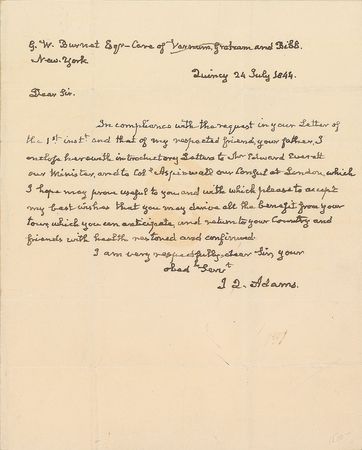 G. W. Burnet Esqr — Care of Varnum, Graham and Bibb.
New-York
Quincy 24 July 1844.
Dear Sir.
In compliance with the request in your Letter of
the 1st instt and that of my respected friend, your father, I
enclose herewith introductory Letters to Mr Edward Everett
our Minister, and to Coll Aspinwall our Consul at London, which
I hope may prove useful to you and with which please to accept
my best wishes that you may derive all the benefit from your
tour which you can anticipate, and return to your Country and
friends with health restored and confirmed.
I am very respectfully, dear Sir, your
obedt Servt
J. Q. Adams.